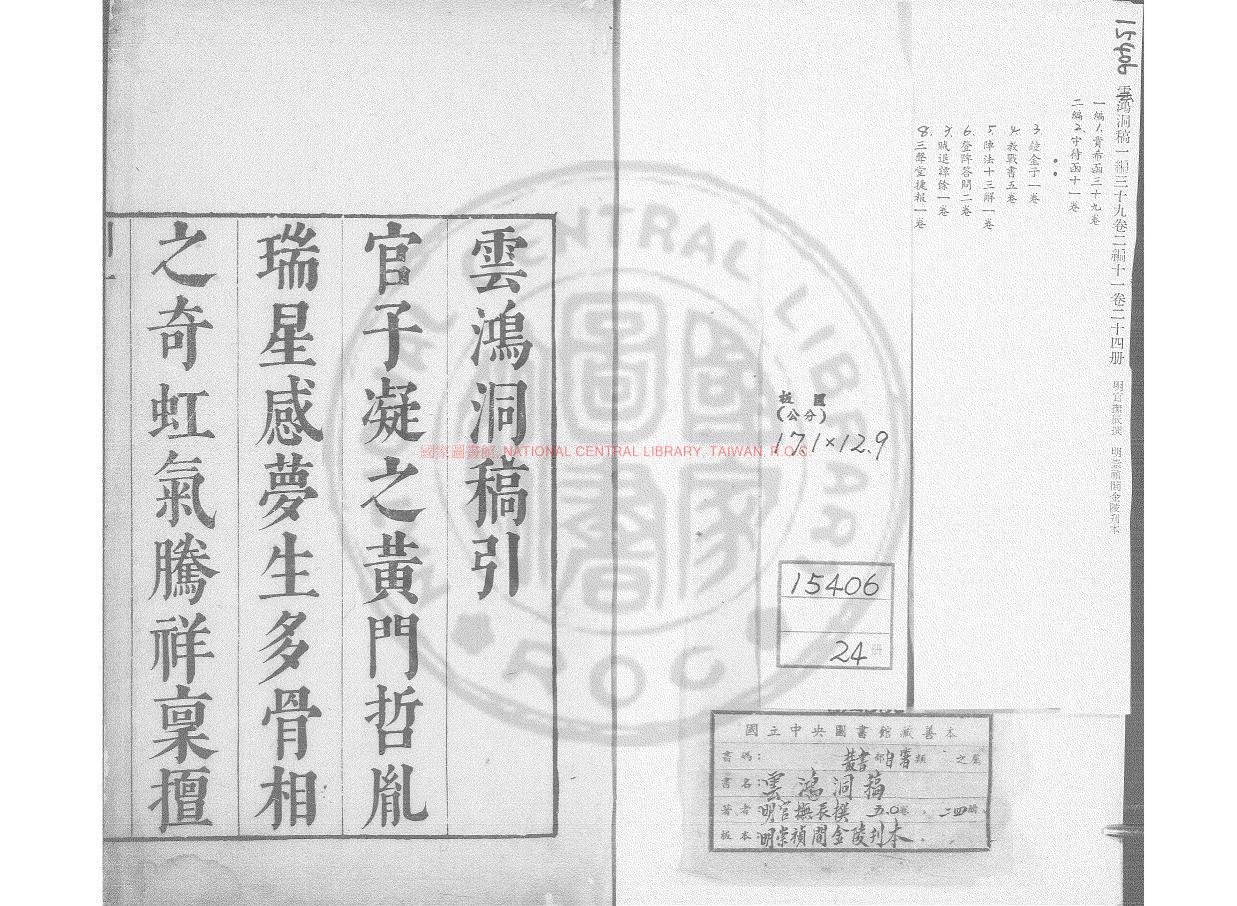 15406
雲鴻洞稿一編三十九卷二編十一卷二十四册 明官撫辰撰 明崇禎間金陵刋本
一編1.貴希函三十九卷
二編2.守待函十一卷
3.鐘金子一卷
4.教戰書五卷
5.陣法十三辯一卷
6.登陴答問二卷
7.賊退譚餘一卷
8.三聲堂捷報一卷
板匡
(公分)
17.1×12.9
15406
24 册
國立中央圖書館藏善本
書碼: 叢書部自著類 之屬
書名: 雲鴻洞稿
著者: 明官撫辰撰 五〇卷 二四册
板本: 明崇禎間金陵刋本
NATIONAL CENTRAL LIBRARY
國家圖書館
R O C
國家圖書館, NATIONAL CENTRAL LIBRARY, TAIWAN, R.O.C.
雲鴻洞稿引
官子凝之黃門哲胤
瑞星感夢生多骨相
之奇虹氣騰祥稟擅